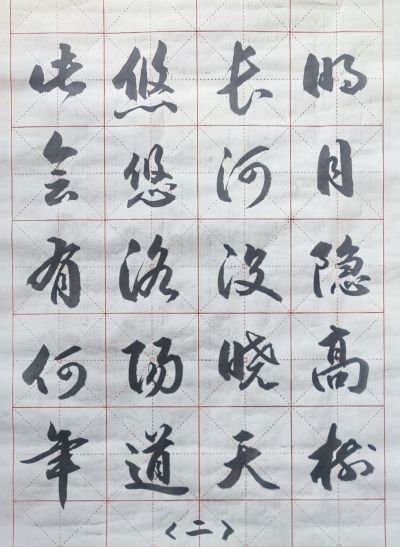 明月隐高树
长河没晓天
悠悠洛阳道
此会有何年
〈二〉